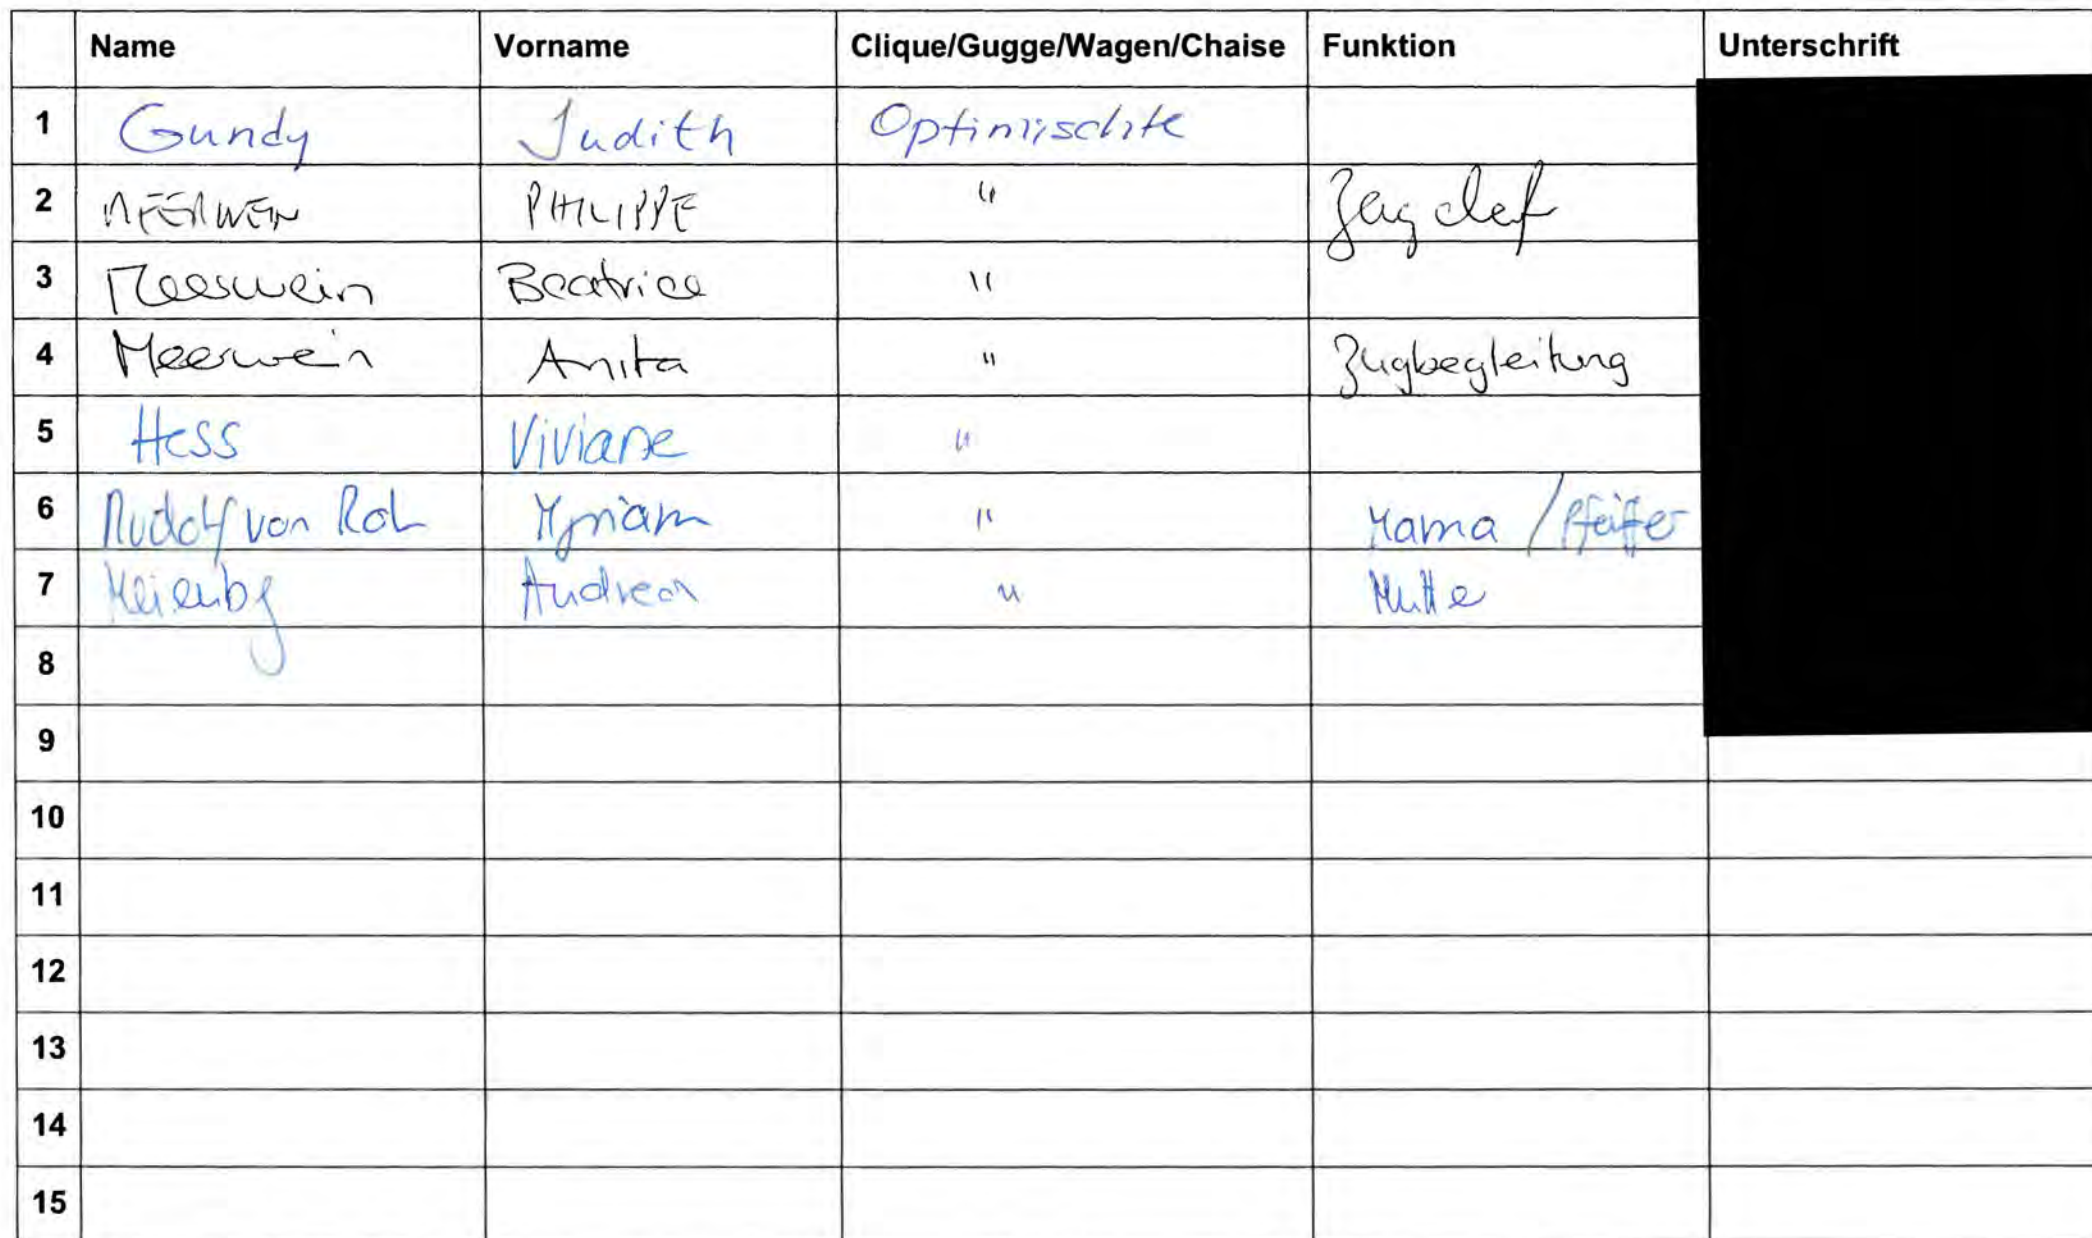 Name Vorname Clique/Gugge/Wagen/Chaise Funktion Unterschrift
1 Gundy Judith Optimischte
2 MEERWEIN PHILIPPE " Zugchef
3 Meerwein Beatrice "
4 Meerwein Anita " Zugbegleitung
5 Hess Viviane "
6 Rudolf von Rohr Myriam " Mama / Pfeiffer
7 Andrea " Mutter
8
9
10
11
12
13
14
15